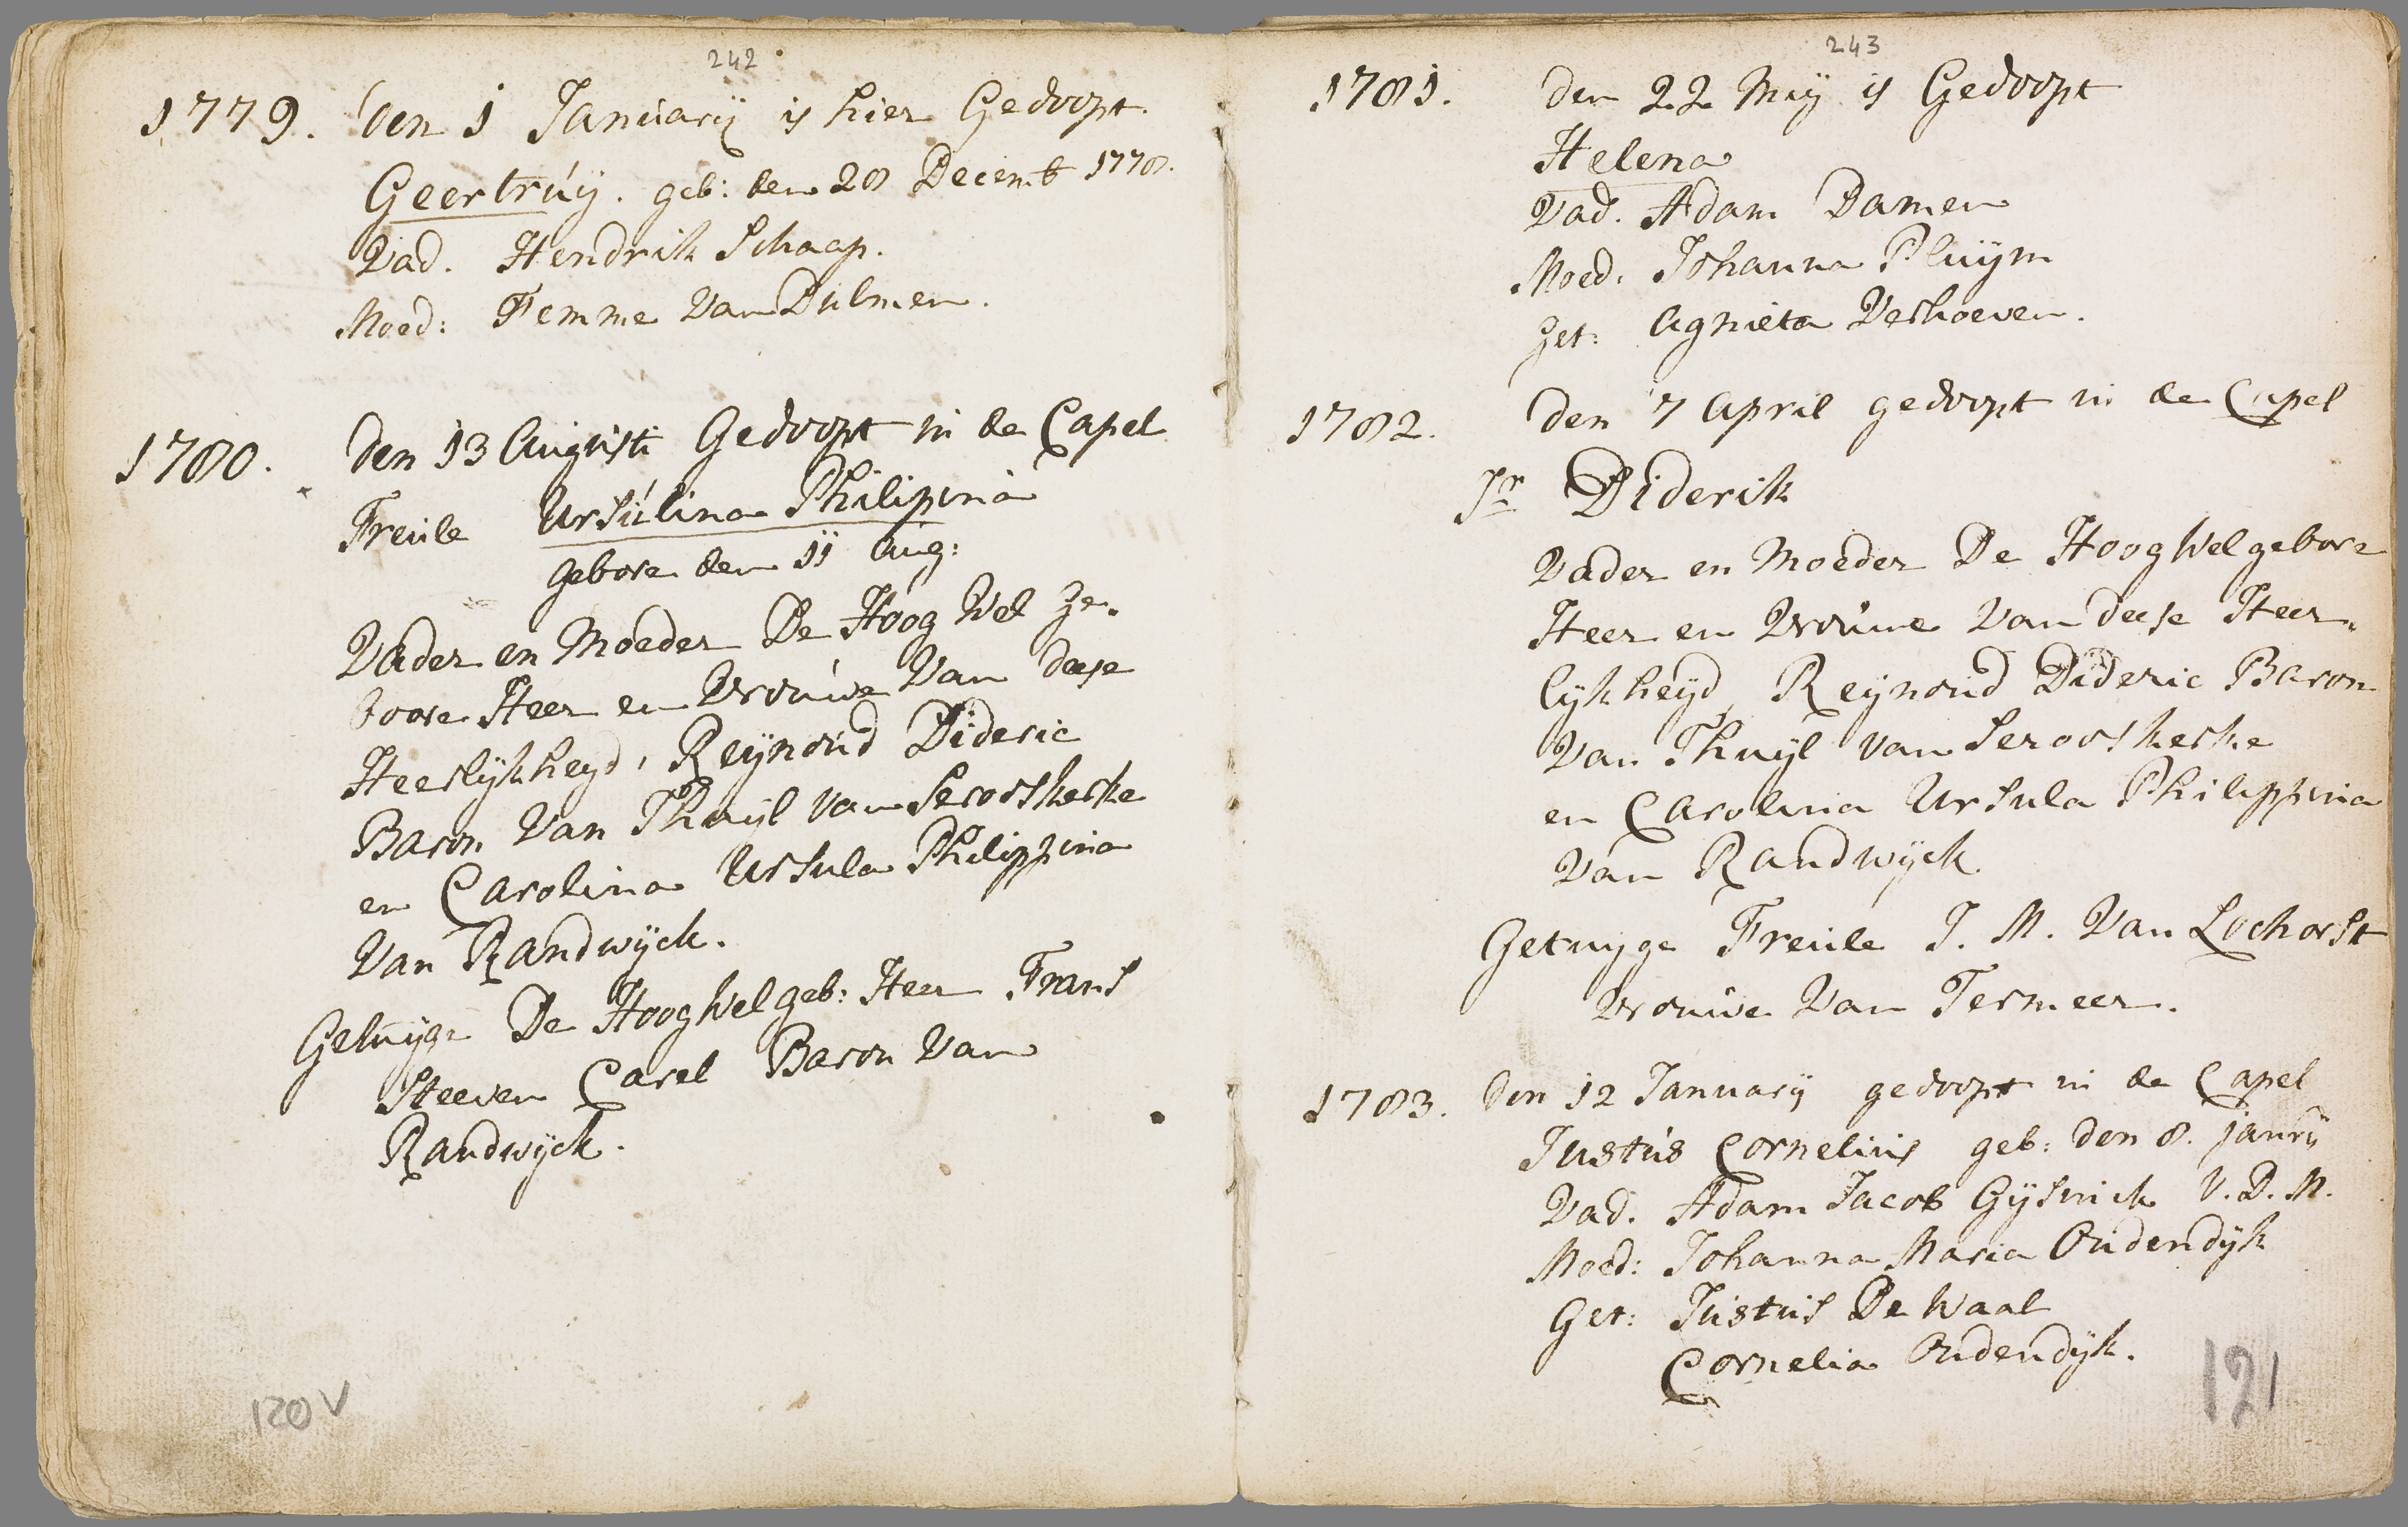 242
1779. Den 1 Januarij is hier Gedoopt.
Geertruij. geb: den 28 Decemb 1778.
Vad. Hendrik Schaap.
Moed: Femme Van Dulmen.
1780. Den 13 Augusti Gedoopt in de Capel
Freule Ursulina Philipina
gebore den 11 Aug:
Vader en Moeder De Hoog Wel ge-
boore Heer en Vrouwe Van deese
Heerlijkheyd, Reijnoud Dideric
Baron Van Thuijl van Serooskerke
en Carolina Ursula Philippina
Van Randwijck.
Getuijge De HoogWelgeb: Heer Frans
Steeven Carel Baron Van
Randwijck.
120 V
243
1781. Den 22 Meij is Gedoopt
Helena
Vad. Adam Damen
Moed. Johanna Pluijm
Get: Agnieta Verhoeven.
1782. Den 7 April gedoopt in de Capel
Jr Diderik
Vader en Moeder De HoogWelgebore
Heer en Vrouwe Van deese Heer-
lijkheijd, Reijnoud Dideric Baron
Van Thuijl van Serooskerke
en Carolina Ursula Philippina
Van Randwijck
Getuijge Freule J. M. Van Lochorst
Vrouwe Van Termeer.
1783. Den 12 Januarij gedoopt in de Capel
Justus Cornelius geb: den 8. janrij
Vad. Adam Jacob Gijsnick V. D. M.
Moed: Johanna Maria Oudendijk
Get: Justus De Waal
Cornelia Oudendijk.
121